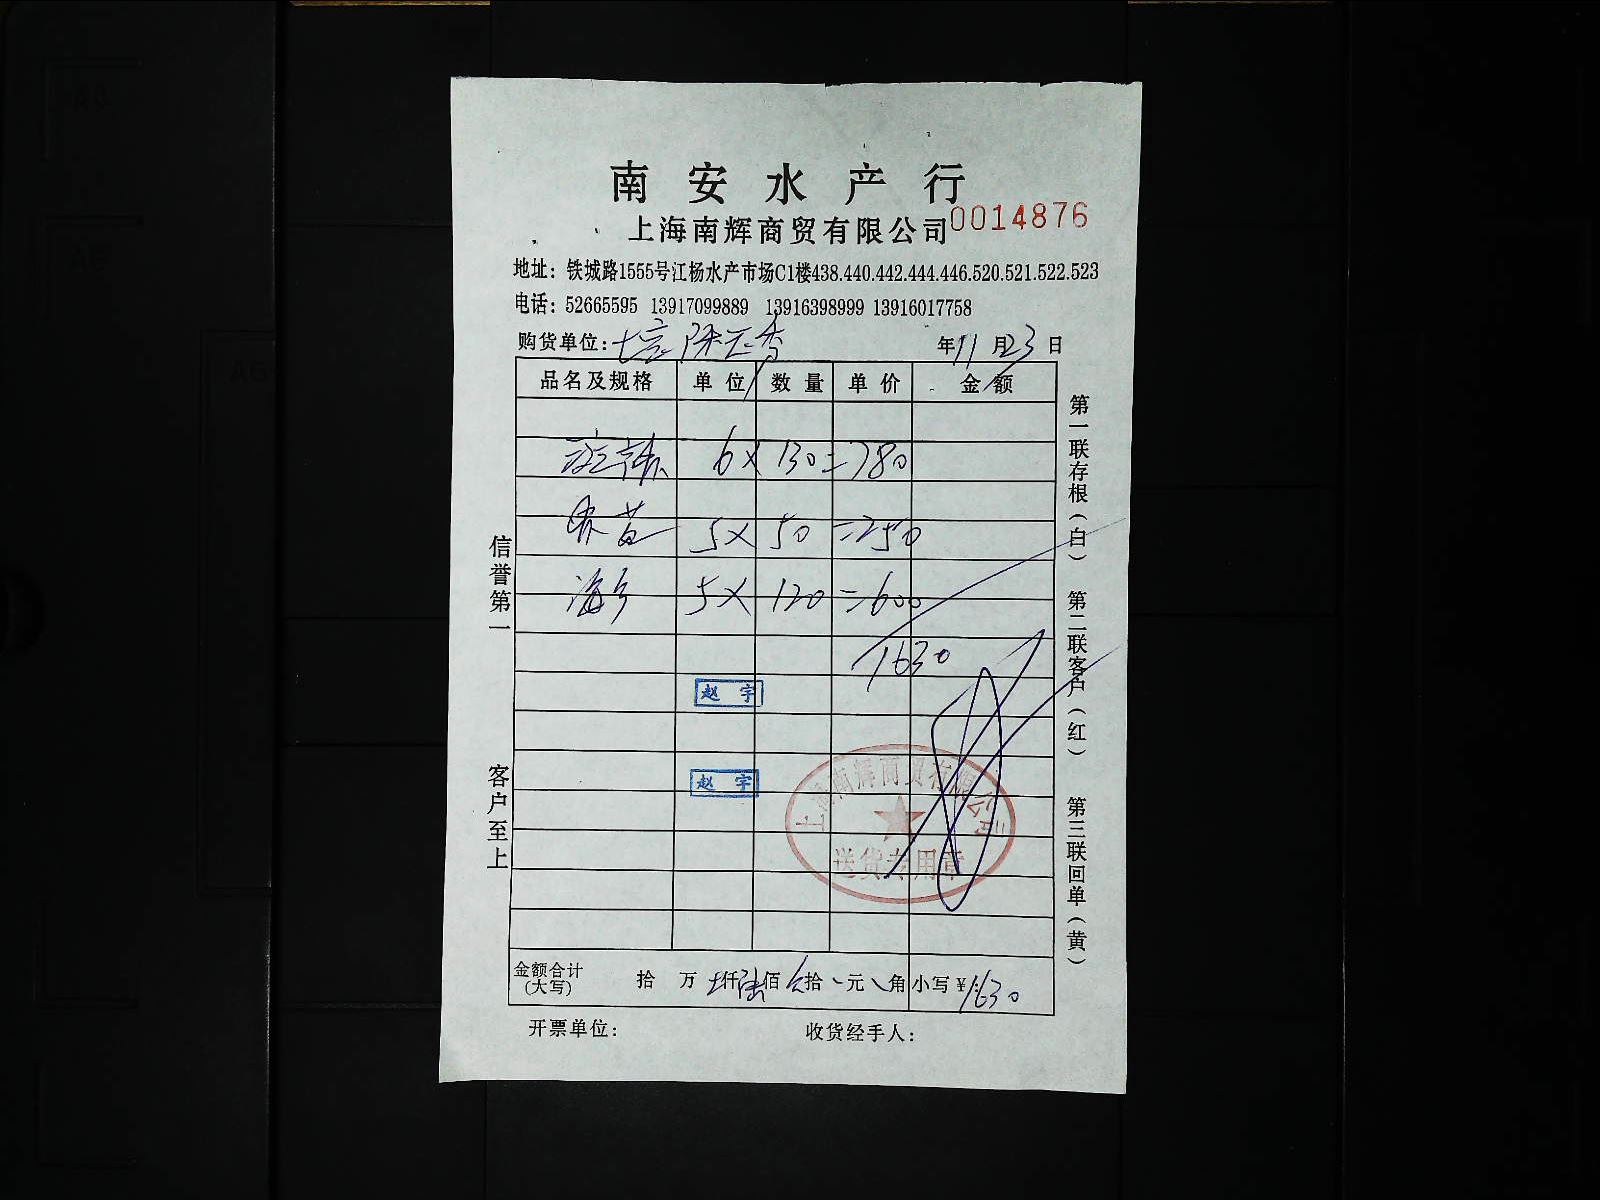 南安水产行
上海南辉商贸有限公司 0014876
地址：铁城路1555号江杨水产市场C1楼438.440.442.444.446.520.521.522.523
电话：52665595 13917099889 13916398999 13916017758
购货单位： 年11月23日
品名及规格 单位 数量 单价 金额
6×130=780
5×50=250
5×120=600
1630
赵宇
赵宇
上海南辉商贸有限公司
送货专用章
金额合计（大写） 拾 万 仟陆佰 拾 元 角 小写￥1630
开票单位： 收货经手人：
信誉第一 客户至上
第一联存根（白） 第二联客户（红） 第三联回单（黄）